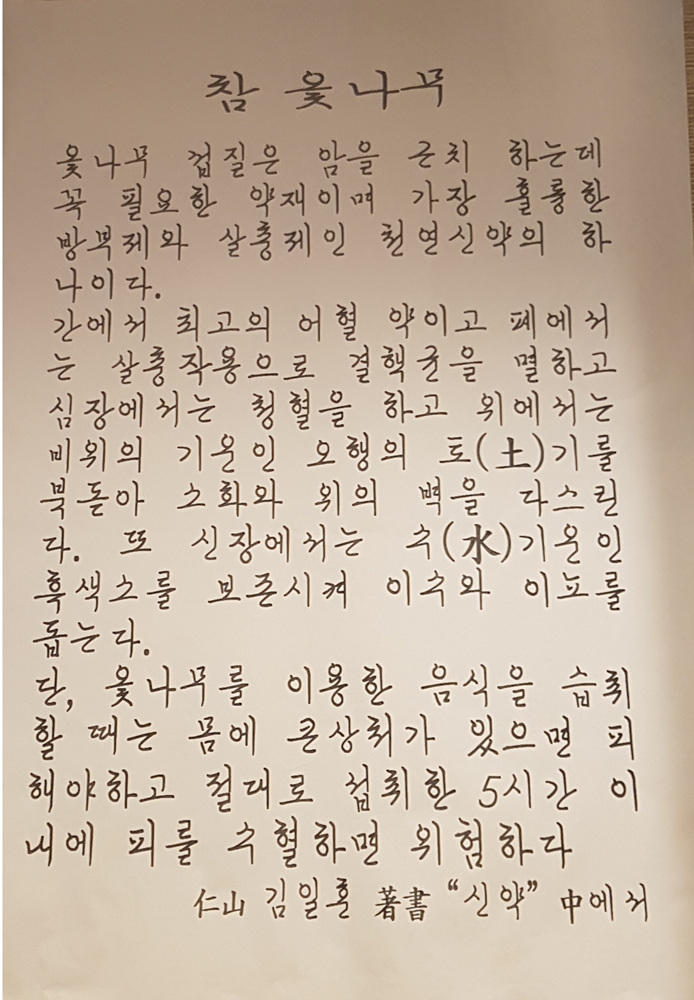 참 옻나무
옻나무 껍질은 암을 근치 하는데
꼭 필요한 약재이며 가장 훌륭한
방부제와 살충제인 천연신약의 하
나이다.
간에서 최고의 어혈 약이고 폐에서
는 살충작용으로 결핵균을 멸하고
심장에서는 청혈을 하고 위에서는
비위의 기운인 오행의 토(土)기를
북돋아 소화와 위의 벽을 다스린
다. 또 신장에서는 수(水)기운인
흑색소를 보존시켜 이수와 이뇨를
돕는다.
단, 옻나무를 이용한 음식을 습취
할 때는 몸에 큰상처가 있으면 피
해야하고 절대로 섭취한 5시간 이
내에 피를 수혈하면 위험하다
仁山 김일훈 著書 "신약" 中에서